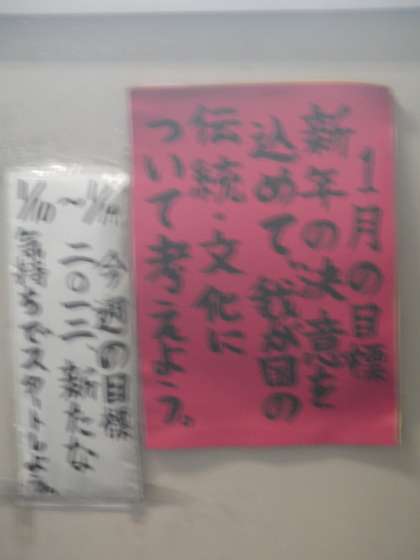 1月の目標
新年の決意を
込めて、我が国の
伝統・文化に
ついて考えよう。
今週の目標
二〇一二、新たな
気持ちでスタートしよう